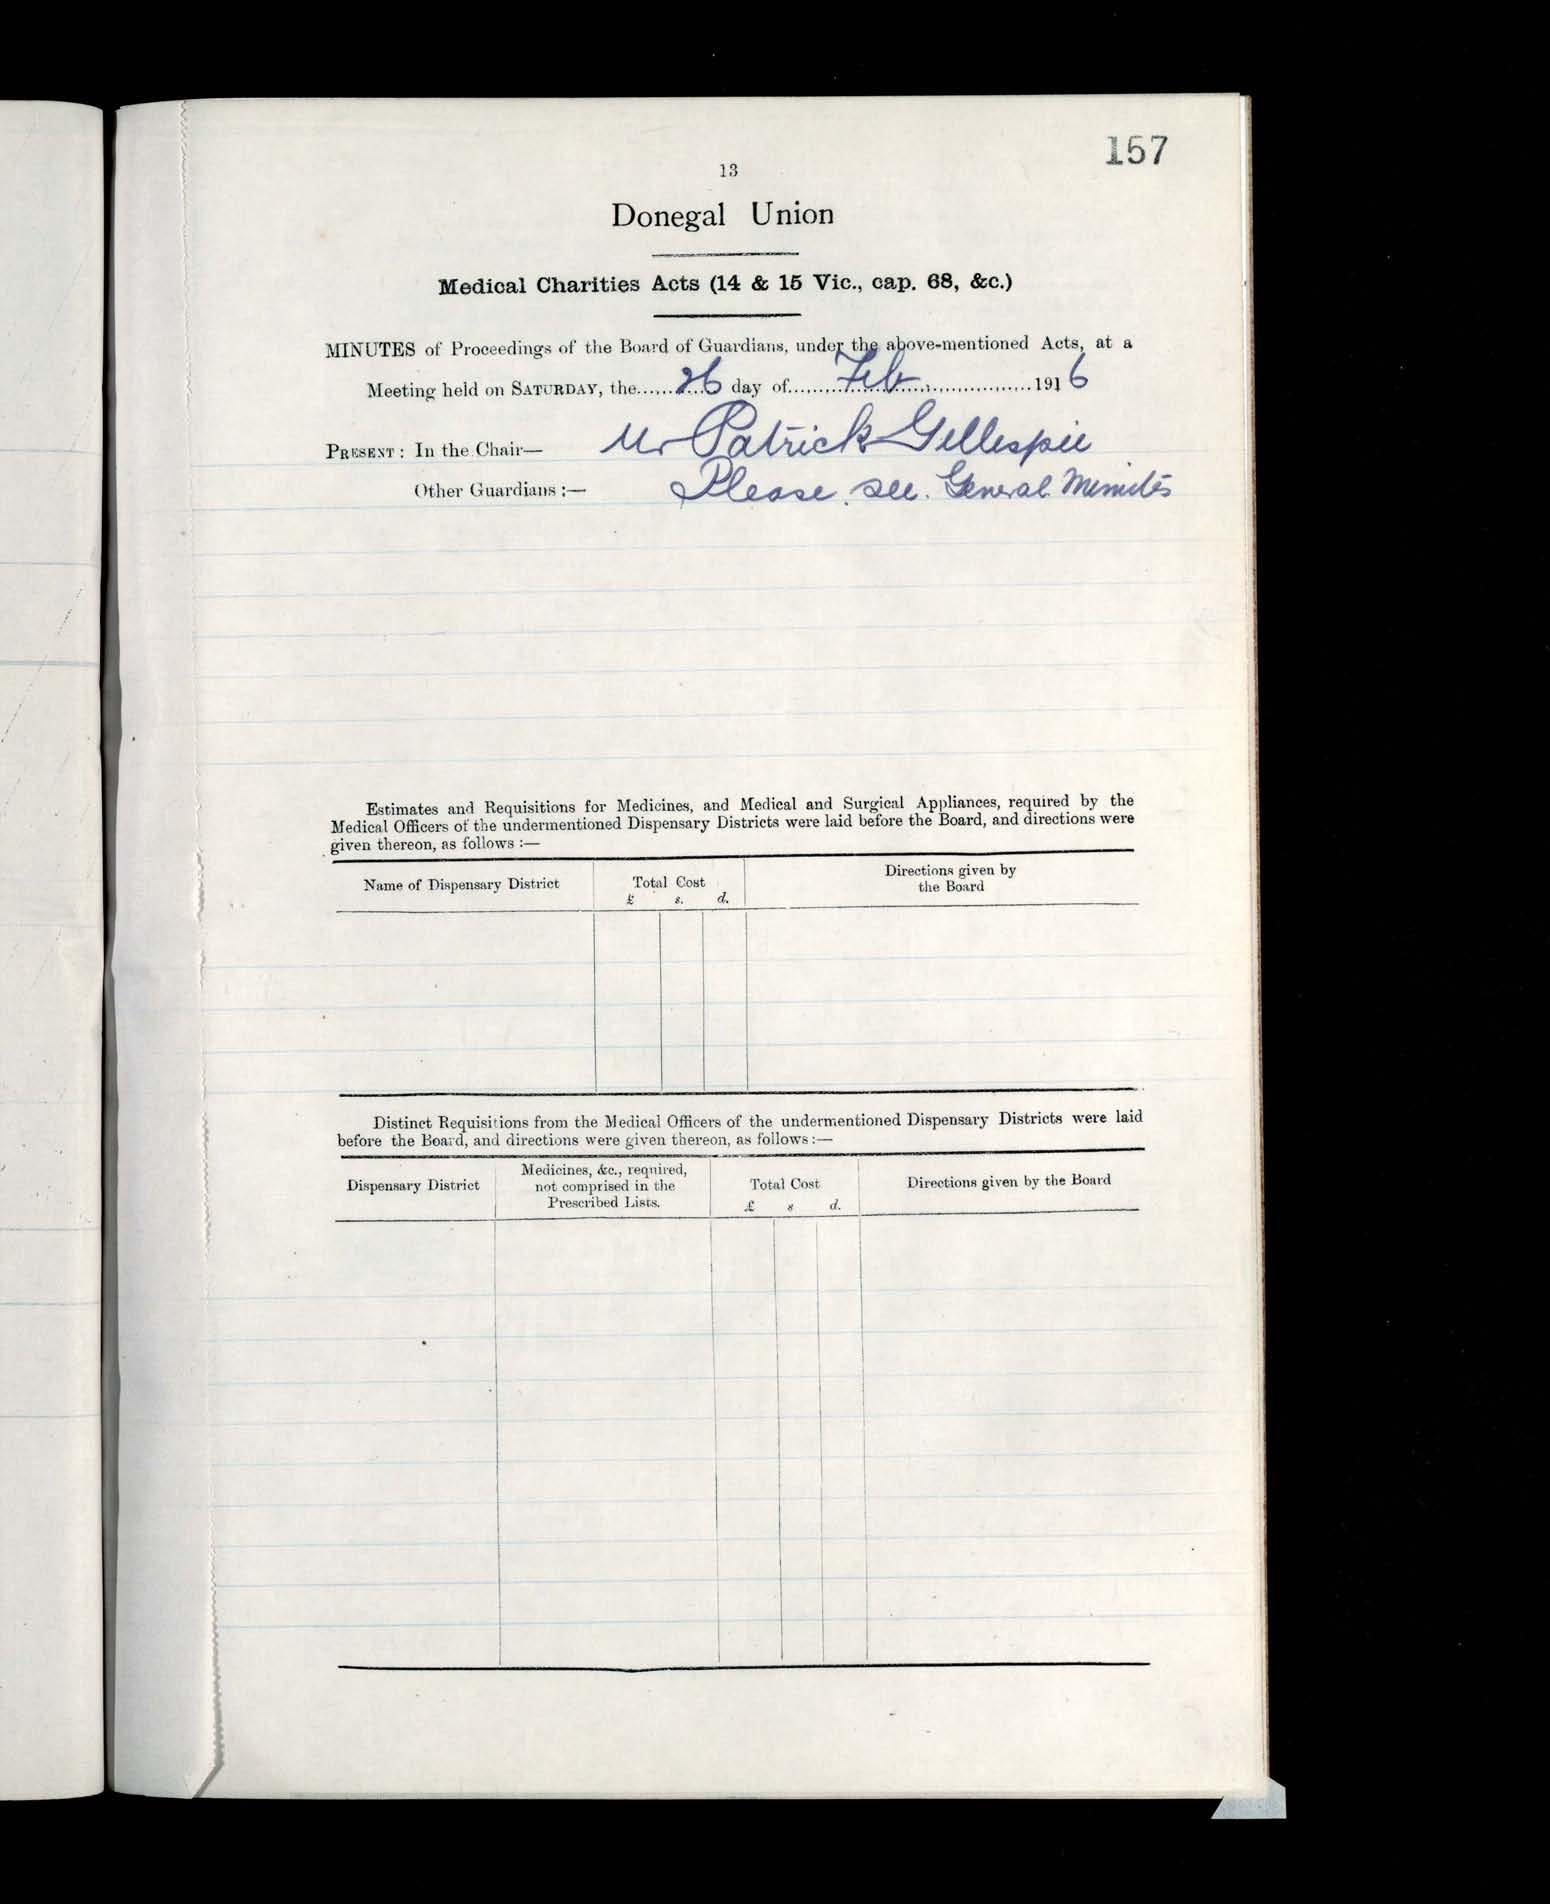 157
13
Donegal Union
Medical Charities Acts (14 & 15 Vic., cap. 68, &c.)
MINUTES of Proceedings of the Board of Guardians, under the above-mentioned Acts, at a
Meeting held on SATURDAY, the......26 day of......Feb......1916
PRESENT: In the Chair— Mr Patrick Gillespie
Other Guardians:— Please see General Minutes
Estimates and Requisitions for Medicines, and Medical and Surgical Appliances, required by the
Medical Officers of the undermentioned Dispensary Districts were laid before the Board, and directions were
given thereon, as follows :—
Name of Dispensary District
Total Cost
£ s. d.
Directions given by
the Board
Distinct Requisitions from the Medical Officers of the undermentioned Dispensary Districts were laid
before the Board, and directions were given thereon, as follows:—
Dispensary District
Medicines, &c., required,
not comprised in the
Prescribed Lists.
Total Cost
£ s d.
Directions given by the Board